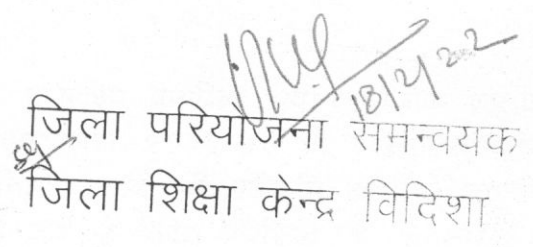 18/2/2002
जिला परियोजना समन्वयक
जिला शिक्षा केन्द्र विदिशा